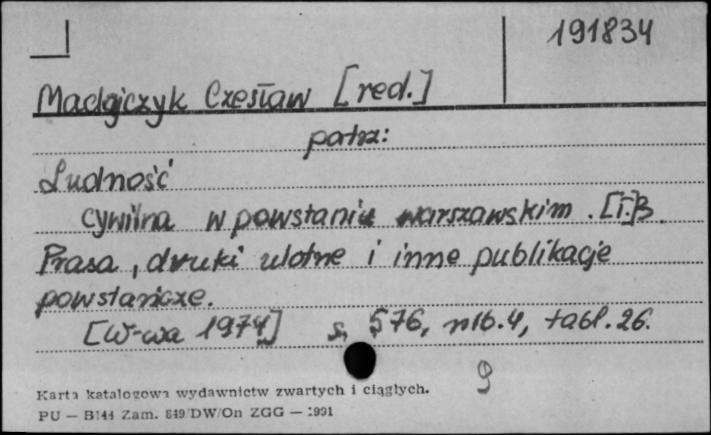 191834
Madajczyk Czesław [red.]
patrz:
Ludność
cywilna w powstaniu warszawskim. [T.]3.
Prasa, druki ulotne i inne publikacje
powstańcze.
[W-wa 1974] s. 576, nlb. 4, tabl. 26.
9
Karta katalogowa wydawnictw zwartych i ciągłych.
PU — B144 Zam. 849/DW/On ZGG — 1991